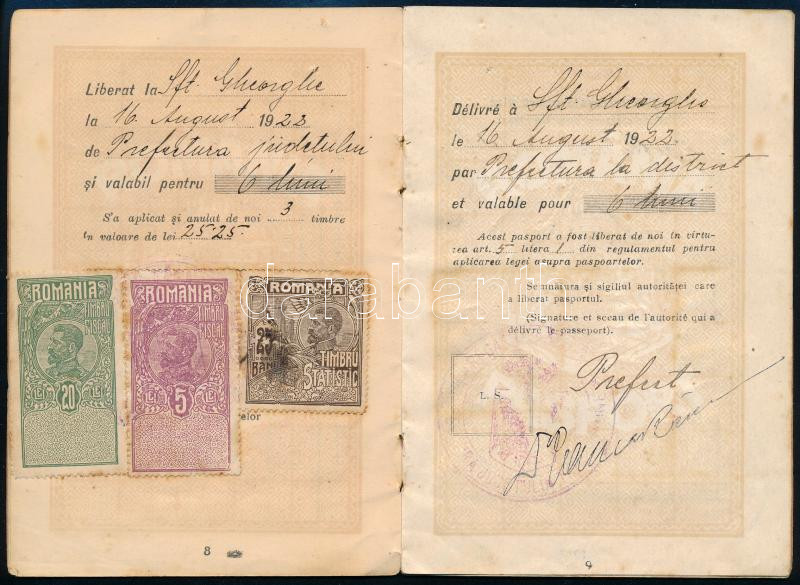 Liberat la Sft. Gheorghe
la 16. August 1922
de Prefectura județului
și valabil pentru 6 luni
S'a aplicat și anulat de noi 3 timbre
în valoare de lei 25-25.
ROMANIA
TIMBRU FISCAL
20
LEI LEI
ROMANIA
TIMBRU FISCAL
5
LEI LEI
ROMANIA
25
BANI
TIMBRU
STATISTIC
elor
8
Délivré à Sft. Gheorghe
le 16 August 1922.
par Prefectura la district
et valable pour 6 luni
Acest pasport a fost liberat de noi în virtu-
rea art. 5 litera 1 din regulamentul pentru
aplicarea legei asupra paspoartelor.
Semnătura și sigiliul autorităței care
a liberat pasportul.
(Signature et sceau de l'autorité qui a
délivré le passeport).
L. S.
Prefect
9
darabanth